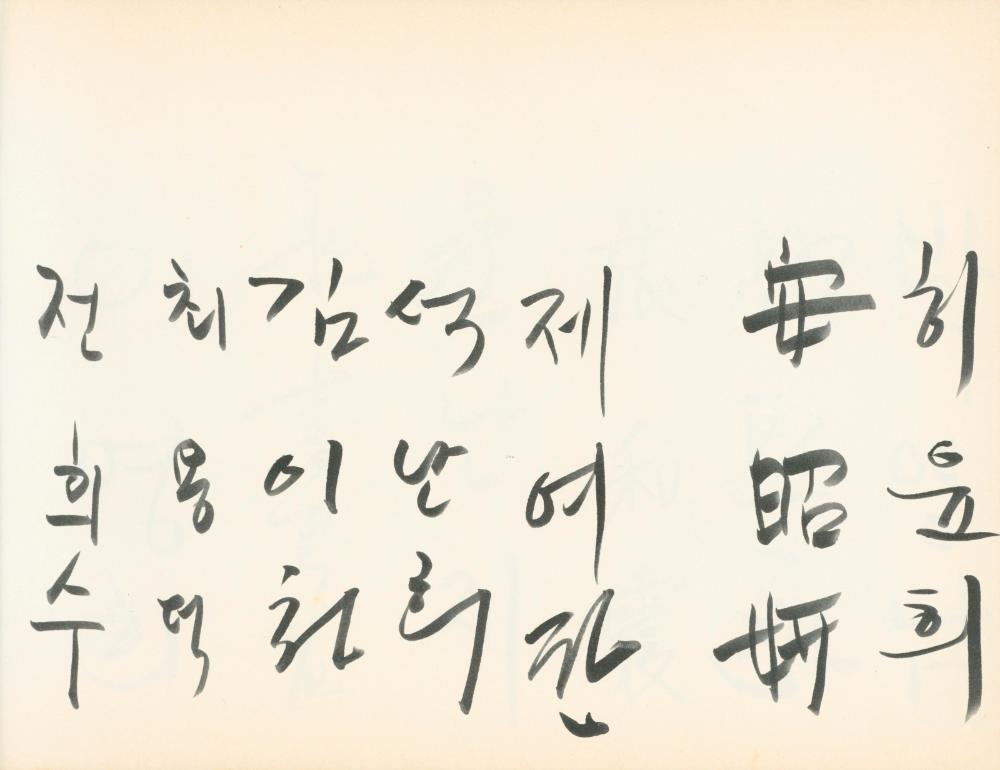 허윤희
安昭姸
제여란
석난희
김이천
최용덕
전희수